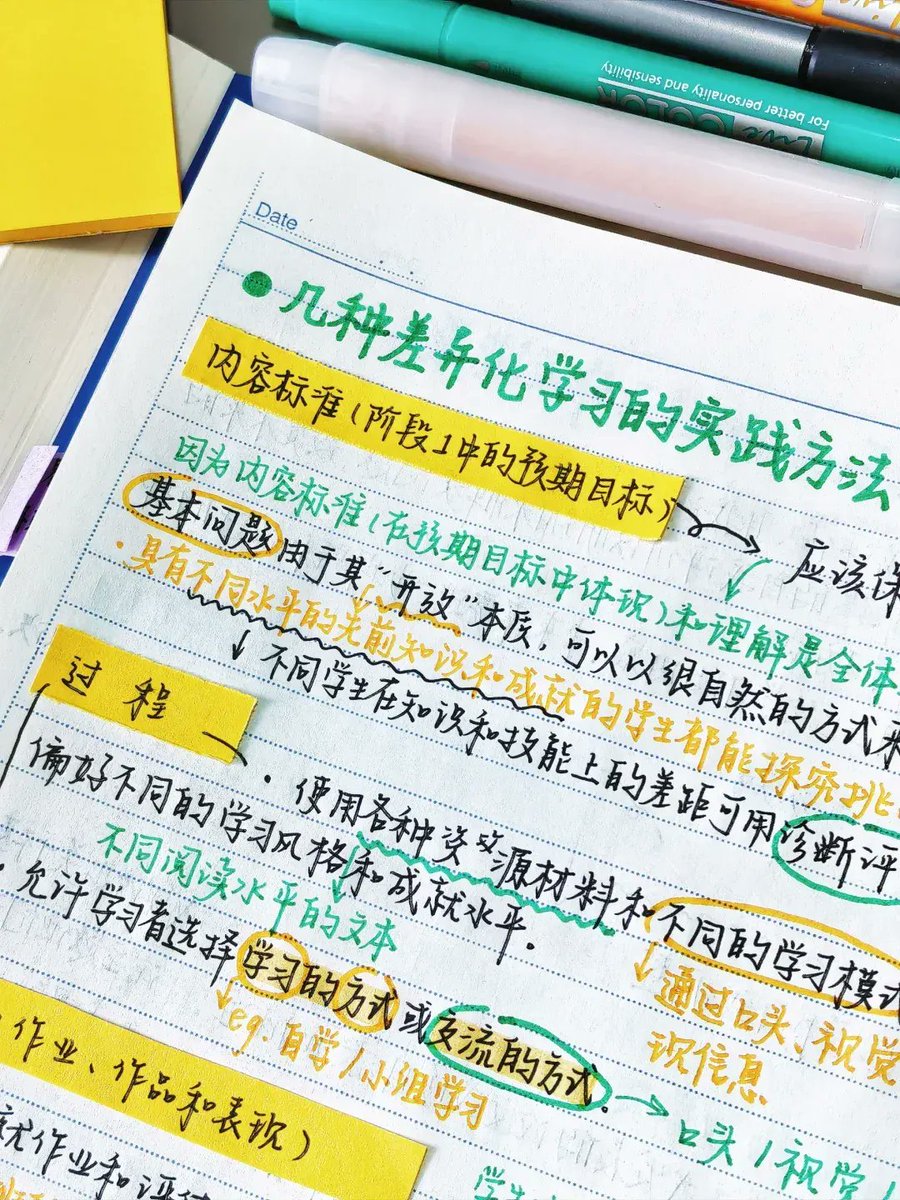 For better personality and sensibility
Live COLOR
Date
几种差异化学习的实践方法
内容标准(阶段1中的预期目标)
应该保
因为内容标准(在预期目标中体现)和理解是全体
基本问题由于其"开放"本质,可以以很自然的方式
·具有不同水平的先前知识和成就的学生都能探究挑
不同学生在知识和技能上的差距可用诊断评
过程
·使用各种资源材料和不同的学习模式
偏好不同的学习风格和成就水平.
不同阅读水平的文本
通过口头、视觉
现信息
·允许学习者选择学习的方式或交流的方式.
eg.自学/小组学习
口头/视觉/
作业、作品和表现)
就作业和评估
学生